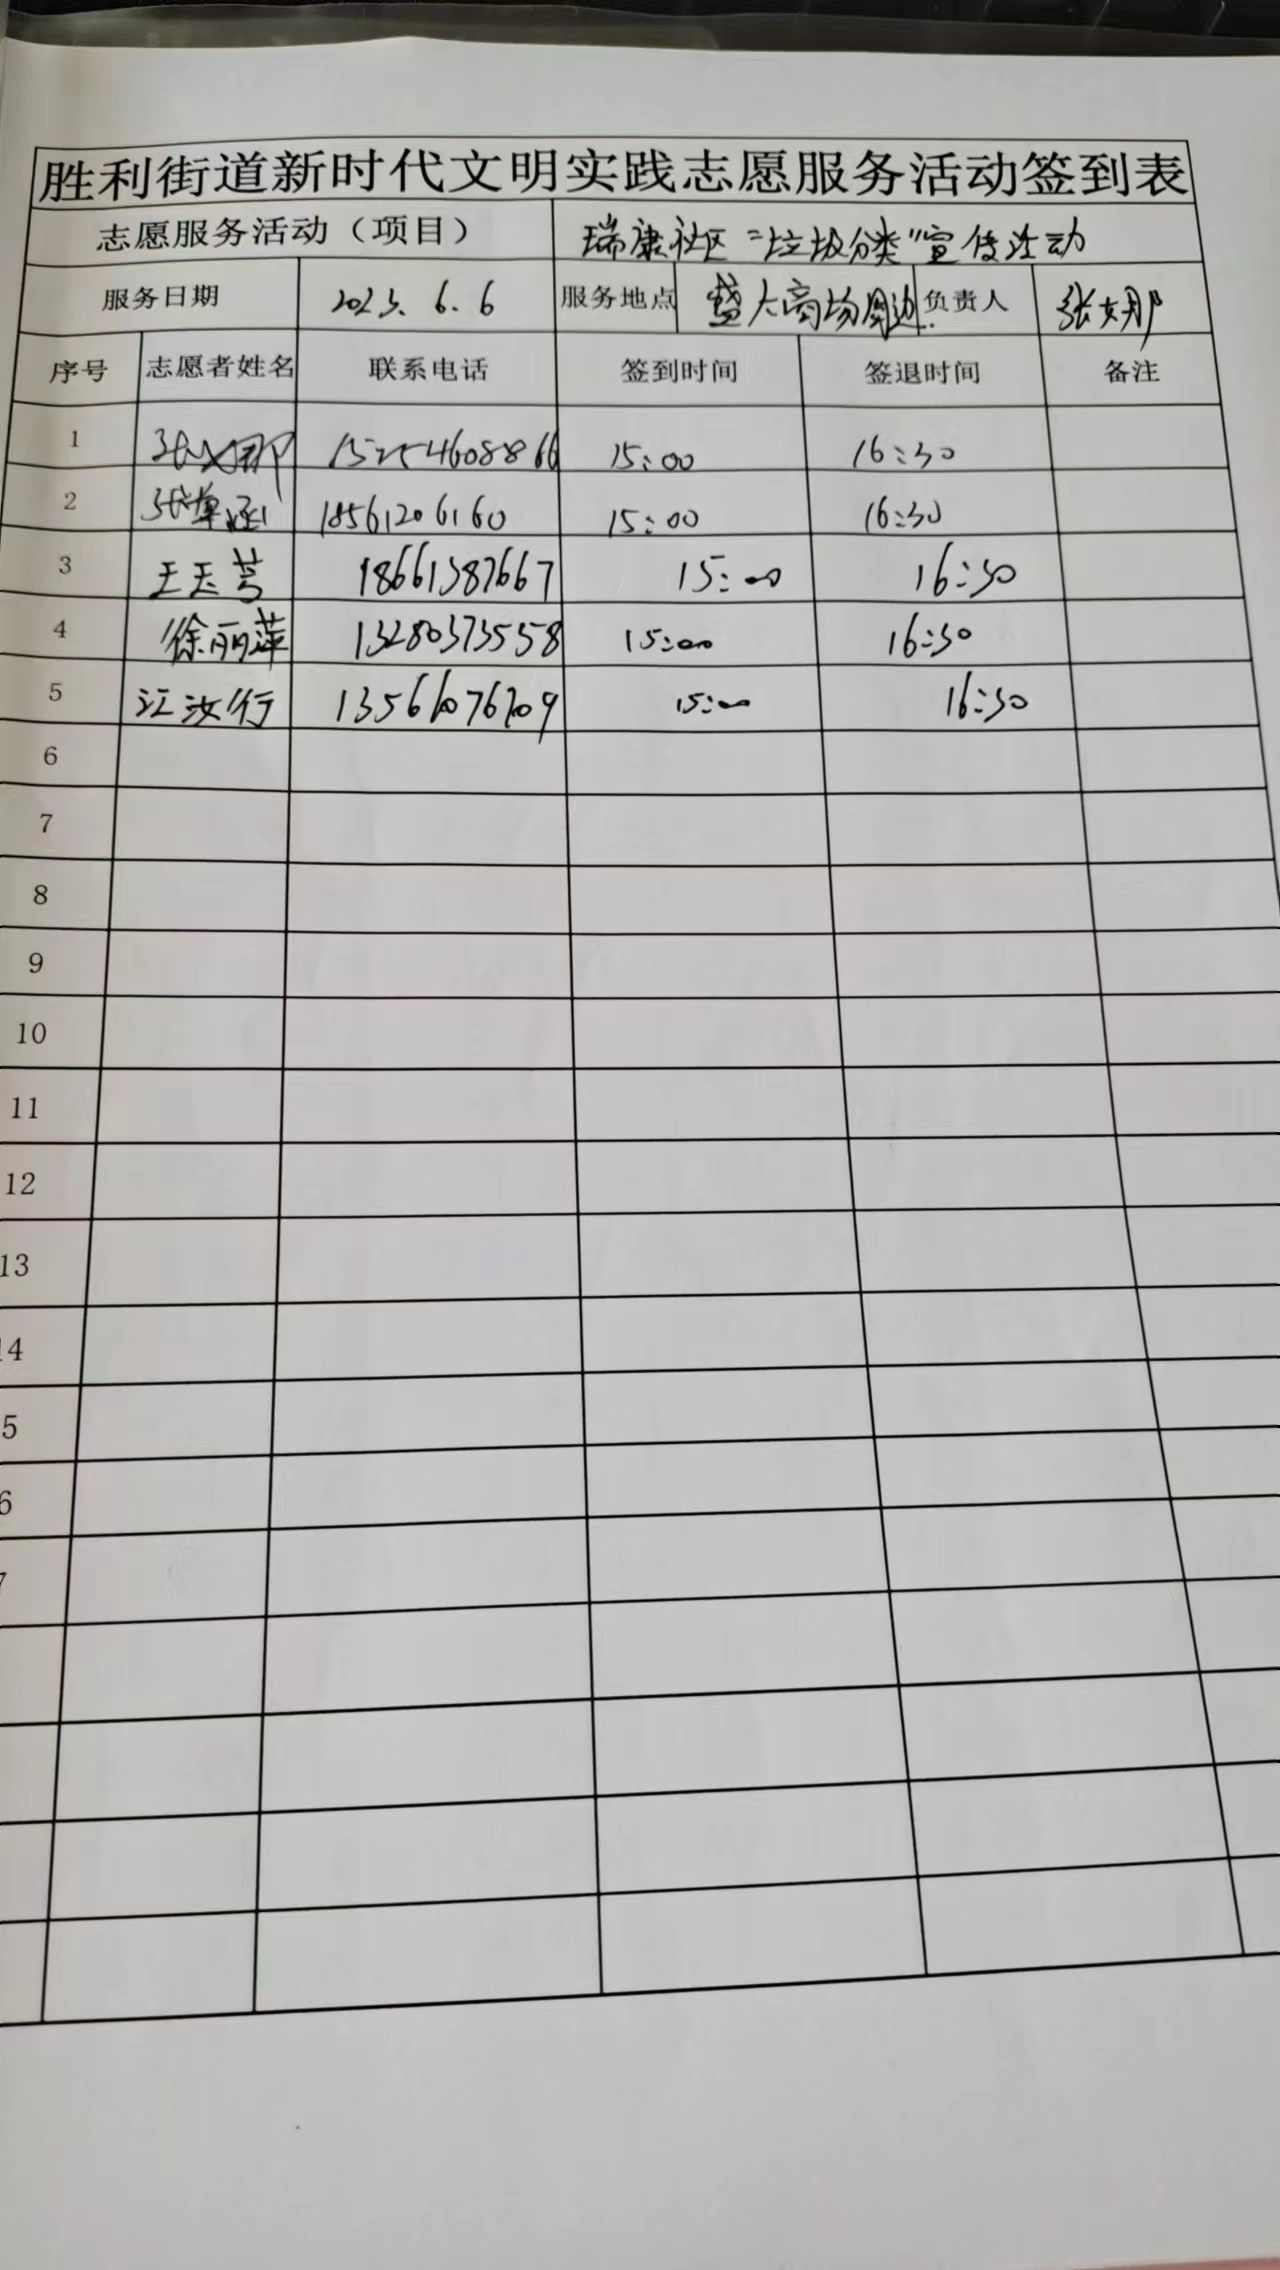 胜利街道新时代文明实践志愿服务活动签到表
志愿服务活动（项目） 瑞康社区“垃圾分类”宣传活动
服务日期 2023.6.6 服务地点 盛大商场周边 负责人 张文那
序号 志愿者姓名 联系电话 签到时间 签退时间 备注
1 张文那 15254608866 15:00 16:30
2 张单涵 18561206160 15:00 16:30
3 王玉芳 18661387667 15:00 16:30
4 徐丽萍 13280373558 15:00 16:30
5 江汝行 15:00 16:30
6
7
8
9
10
11
12
13
14
5
6
7